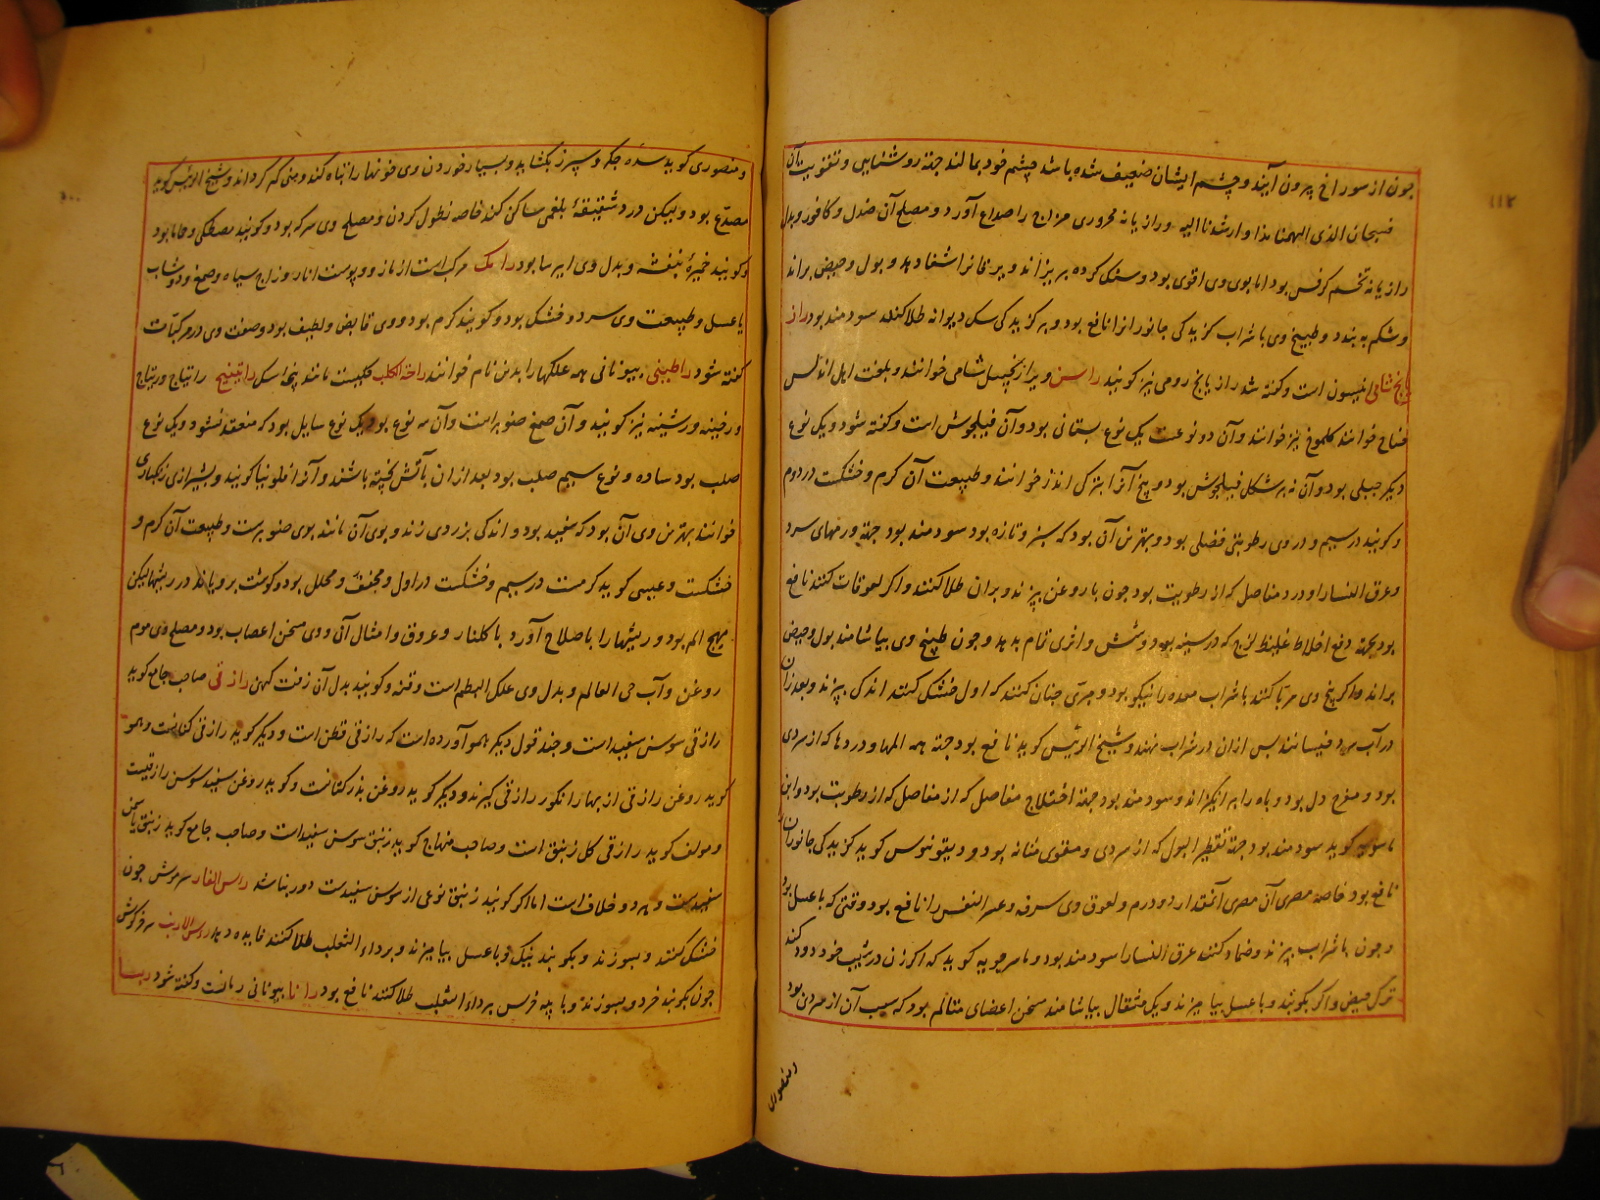 چون از سوراخ بیرون آیند و چشم ایشان ضعیف شده باشد چشم خود بمالند جهة روشنایی و تقویت آن
فسبحان الذی الهمنا هذا و ارشدنا الیه و رازیانه محروری مزاج را صداع آورد و مصلح آن صندل و کافور و بدل
رازیانه تخم کرفس بود اما بوی وی اقوی بود و سنک کرده بریزاند و یرقانرا شفا دهد و بول و حیض براند
و شکم به بندد و طبیخ وی با شراب کزیدکی جانورانرا نافع بود و بر کزیدکی سک دیوانه طلا کنند سودمند بود راز
یانج شامی انیسون است و کفته شد رازیانج رومی نیز کویند راسن ویرا زنجبیل شامی خوانند و بلغت اهل اندلس
جناح خوانند کلموخ نیز خوانند و آن دو نوعست یک نوع بستانی بود و آن فیلجوش است و کفته شود و یک نوع
دیکر جبلی بود و آن نه بر شکل فیلجوش بود و بیخ آنرا بترکی اندز خوانند و طبیعت آن کرم و خشکست در دوم
و کویند در سیم و در وی رطوبتی فضلی بود و بهترین آن بود که سبز و تازه بود سودمند بود جهة ورمهای سرد
و عرق النسا را و درد مفاصل که از رطوبت بود چون با روغن بپزند و بران طلا کنند و اکر لعوقات کنند نافع
بود بجهة دفع اخلاط غلیظ لزج که در سینه بود و شش و اثری تمام بدهد و چون طبیخ وی بیاشامند بول و حیض
براند و اکر بیخ وی مربا کنند با شراب معده را نیکو بود و مربی چنان کنند که اول خشک کنند اندکی بپزند و بعد ازان
در آب سرد خیسانند پس ازان در شراب نهند و شیخ الرئیس کوید نافع بود جهة همه المها و دردها که از سردی
بود و مفرح دل بود و باه را برانکیزاند و سودمند بود جهة اختلاج مفاصل که از مفاصل که از رطوبت بود و ابن
ماسویه کوید سودمند بود جهة تقطیر البول که از سردی و مقوی مثانه بود و دیقونوس کوید کزیدکی جانوران
نافع بود خاصه مصری آن مصری آنمقدار دو درم و لعوق وی سرفه و عسر النفس را نافع بود وقتی که با عسل بود
و چون با شراب بپزند و ضماد کنند عرق النسا را سودمند بود و ماسرجویه کوید که اکر زن در شیب خود دود کند
ترک حیض و اکر بکوبند و با عسل بیامیزند و یک مثقال بیاشامند سخن اعضای متالم بود که سبب آن از سردی بود
و منصوری
و منصوری کوید سده جکر و سپرز بکشاید و بسیار خوردن وی خونها را تباه کند و منی کم کرداند و شیخ الرئیس کوید
مصدع بود و لیکن درد شقیقهٔ بلغمی ساکن کند خاصه نطول کردن و مصلح وی سرکه بود و کویند مصطکی و حاما بود
و کویند خمیرهٔ بنفشه و بدل وی ایرسا بود رامک مرکب است از مازو و پوست انار و زاج سیاه و صمغ و دوشاب
یا عسل و طبیعت وی سرد و خشک بود و کویند کرم بود و وی قابض و لطیف بود و صفت وی در مرکبات
کفته شود راطینی بیونانی همه علکها را بدین نام خوانند راحة الکلب کلیست مانند پنجه سک راتینج راتیاج و ریتیاج
و رخبینه و رشینه نیز کویند و آن صمغ صنوبر است و آن سه نوع بود یک نوع سایل بود که منعقد نشود و یک نوع
صلب بود ساده و نوع سیم صلب بود بعد ازان بآتش پخته باشند و آنرا قلونیا کویند و بشیرازی زنکباری
خوانند بهترین وی آن بود که سفید بود و اندکی بزردی زند و بوی آن مانند بوی صنوبرست و طبیعت آن کرم و
خشکست و عیسی کوید کرمست در سیم و خشکست در اول و مجفف و محلل بود و کوشت برویاند در ریشها لیکن
مهیج الم بود و ریشها را باصلاح آورد با کلنار و عروق و امثال آن و وی سخن اعصاب بود و مصلح وی موم
روغن و آب حی العالم و بدل وی علک البطم است و قنه و کویند بدل آن زفت کهن رازقی صاحب جامع کوید
رازقی سوسن سفید است و چند قول دیکر هم آورده است که رازقی قطن است و دیکر کوید رازقی کتانست و همو
کوید روغن رازقی از بهار انکور رازقی کیرند و دیکر کوید روغن بذر کتانست و کوید روغن سفید سوسن رازقیست
و مولف کوید رازقی کل زنبق است و صاحب منهاج کوید زنبق سوسن سفید است و صاحب جامع کوید زنبق یاسمن
سفیدست و هر دو خلاف است اما اکر کویند زنبق نوعی از سوسن سفیدست دور نباشد راس الفار سر موش چون
خشک کنند و بسوزند و بکوبند نیک و با عسل بیامیزند و بر داء الثعلب طلا کنند فایده دهد راس الارنب سر خرکوش
چون بکوبند خرد و بسوزند و با پیه خرس بر داء الثعلب طلا کنند نافع بود رانا بیونانی رمانست و کفته شود ربسا